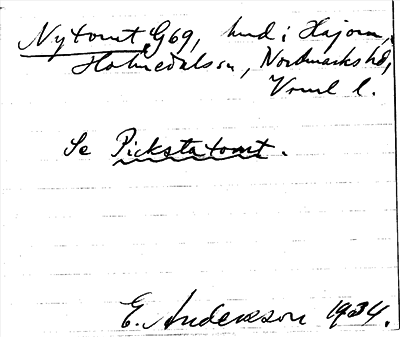 Nytomt, G69, hmd i Hajom,
Holmedals sn, Nordmarks hd,
Vrml l.
Se Pickstatomt.
E. Andersson 1934.